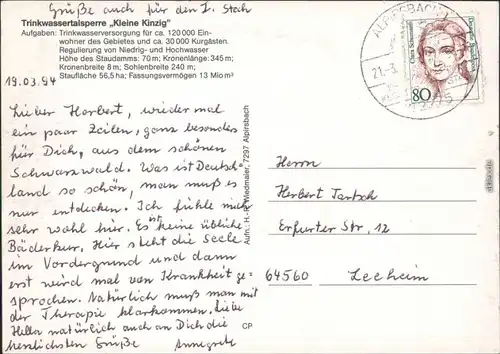 Grüße auch für den I. Stock
Trinkwassertalsperre „Kleine Kinzig"
Aufgaben: Trinkwasserversorgung für ca. 120 000 Ein-
wohner des Gebietes und ca. 30 000 Kurgästen.
Regulierung von Niedrig- und Hochwasser
Höhe des Staudamms: 70 m; Kronenlänge: 345 m;
Kronenbreite 8 m; Sohlenbreite 240 m;
Staufläche 56,5 ha; Fassungsvermögen 13 Mio m³
19.03.94
Lieber Herbert, wieder mal
ein paar Zeilen, ganz besonders
für Dich, aus dem schönen
Schwarzwald. Was ist Deutsch-
land so schön, man muß es
nur entdecken. Ich fühle mich
sehr wohl hier. Es ist keine übliche
Bäderkur. Hier steht die Seele
im Vordergrund und dann
erst wird mal von Krankheit ge-
sprochen. Natürlich muß man mit
der Therapie klarkommen. Liebe
Hella natürlich auch an Dich die
herzlichsten Grüße Annegrete
Aufn.: H.-P. Wiedmaier, 7297 Alpirsbach
CP
ALPIRSBACH
21.-3.
Clara Schumann
Deutsche Bundespost
80
Herrn
Herbert Tartsch
Erfurter Str. 12
64560 Leeheim